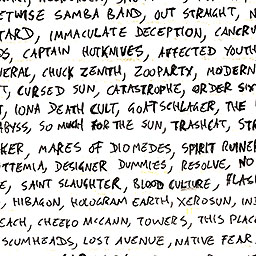 ETWISE SAMBA BAND, OUT STRAIGHT, N
TARD, IMMACULATE DECEPTION, CANCERV
DS, CAPTAIN HOTKNIVES, AFFECTED YOUTH
NERAL, CHUCK ZENITH, ZOOPARTY, MODERN
T, CURSED SUN, CATASTROPHE, ORDER SIX
T, IONA DEATH CULT, GOATSCHLAGER, THE
ABYSS, SO MUCH FOR THE SUN, TRASHCAT, STR
KER, MARES OF DIOMEDES, SPIRIT RUINER
OTTEMIA, DESIGNER DUMMIES, RESOLVE, NO
E, SAINT SLAUGHTER, BLOOD CULTURE, FLAS
, HIBAGON, HOLOGRAM EARTH, XEROSUN, IN
EACH, CHEEKO MCCANN, TOWERS, THIS PLAC
SCUMHEADS, LOST AVENUE, NATIVE FEAR